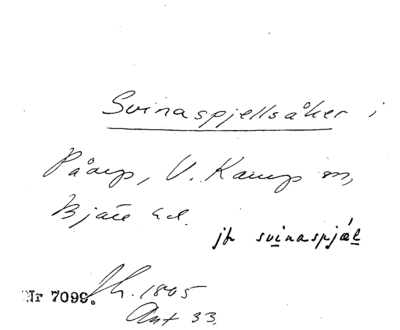 Svinaspjellsåker i
Påarp, V. Karup sn,
Bjäre hd.
jfr svinaspjæl
Nr 7099. Lh. 1805
Akt 33.